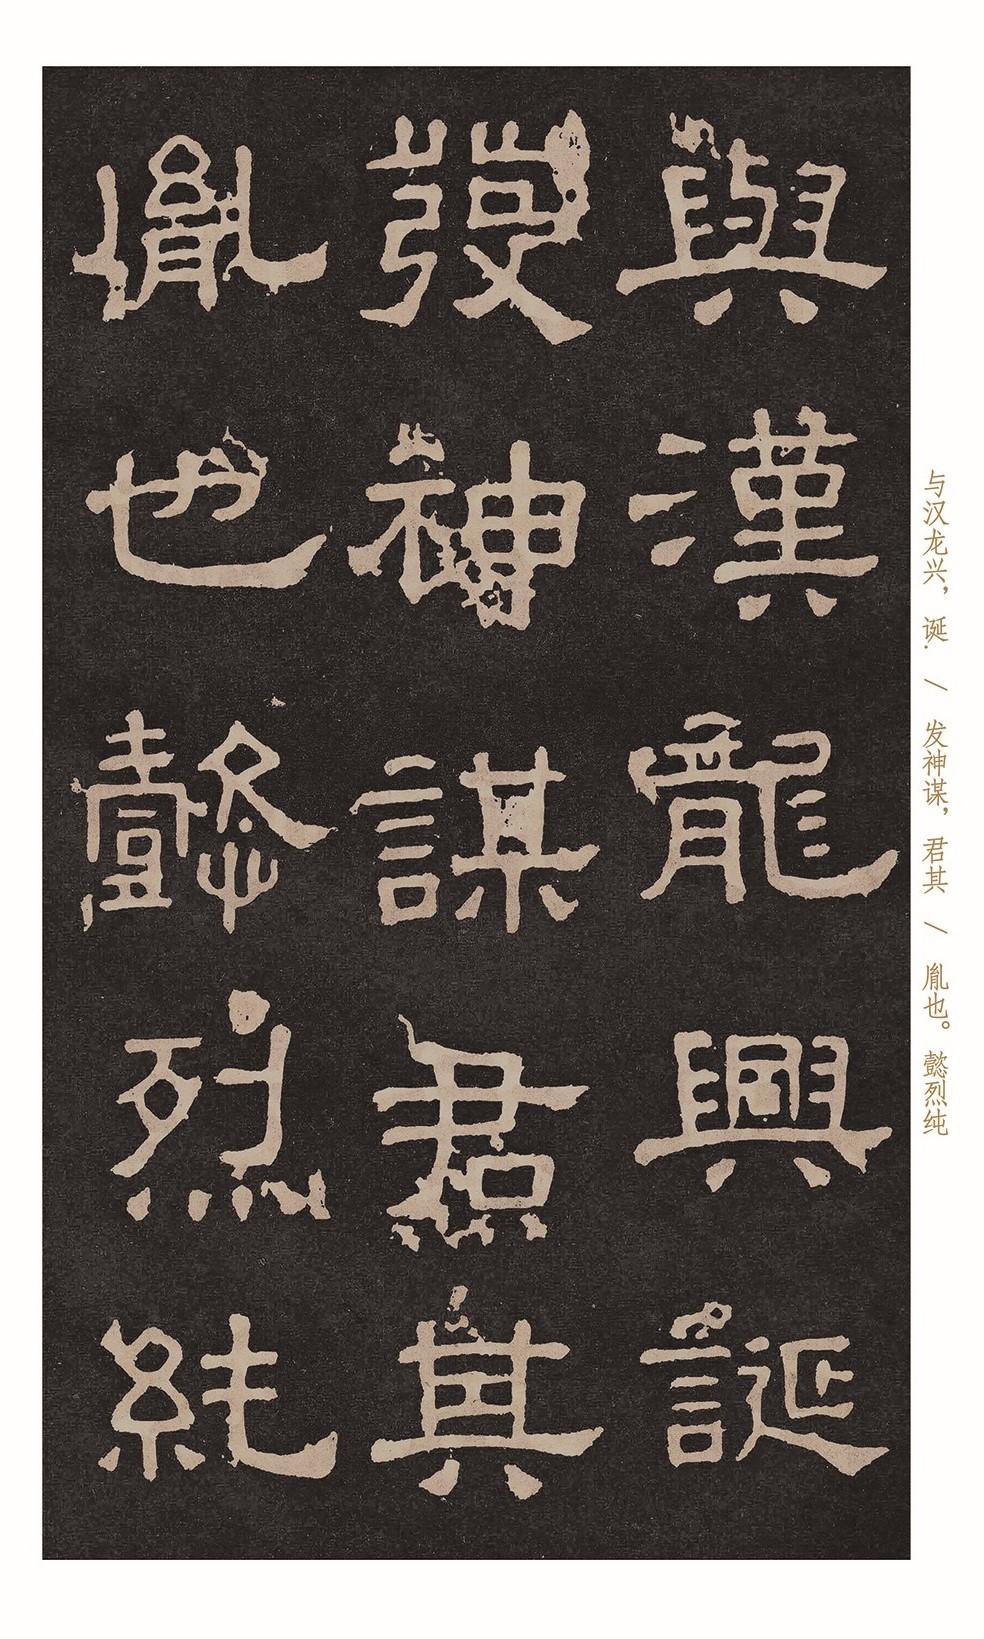 與漢龍興誕
發神謀君其
胤也懿烈純
与汉龙兴，诞. / 发神谋，君其 / 胤也。懿烈纯